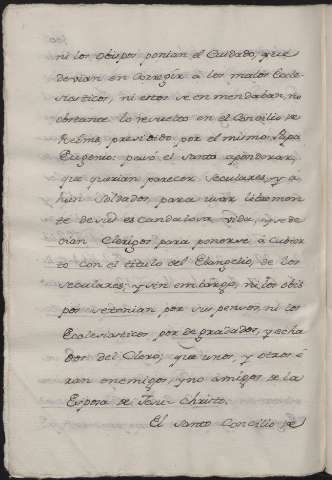 ni los obispos ponian el Cuidado, que
devian en Corregir à los malos Ecle-
siasticos, ni estos se enmendaban, no
obstante lo resuelto en el Concilio de
Reims, presidido por el mismo Papa
Eugenio: pasó el Santo a ponderar,
que querian parecer Seculares, y á
hun Soldados, para usar librement
te de sus escandalosa vida, y se de
cian Clerigos para ponerse à cubier
to con el titulo del Evangelio, de los
seculares; y sin embargo, ni los obis
pos se tenian por suspensos, ni los
Ecclesiasticos por degradados, y echa
dos del Clero; que unos, y otros é
ran enemigos, y no amigos de la
Esposa de Jesu-Christo.
El Santo Concilio de